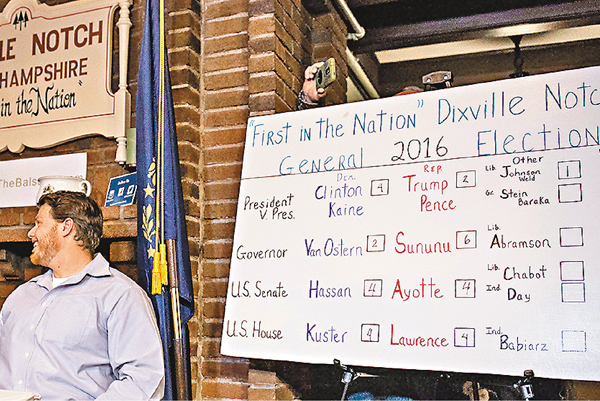 LE NOTCH
HAMPSHIRE
in the Nation"
TheBals
"First in the Nation" Dixville Notc
General 2016 Election
Dem. REP. Other
President V. Pres. Clinton Kaine 4 Trump Pence 2 Lib. Johnson Weld 1
Gr. Stein Baraka
Governor Van Ostern 2 Sununu 6 Lib. Abramson
Lib. Chabot
U.S. Senate Hassan 4 Ayotte 4 Ind. Day
U.S. House Kuster 4 Lawrence 4 Ind. Babiarz